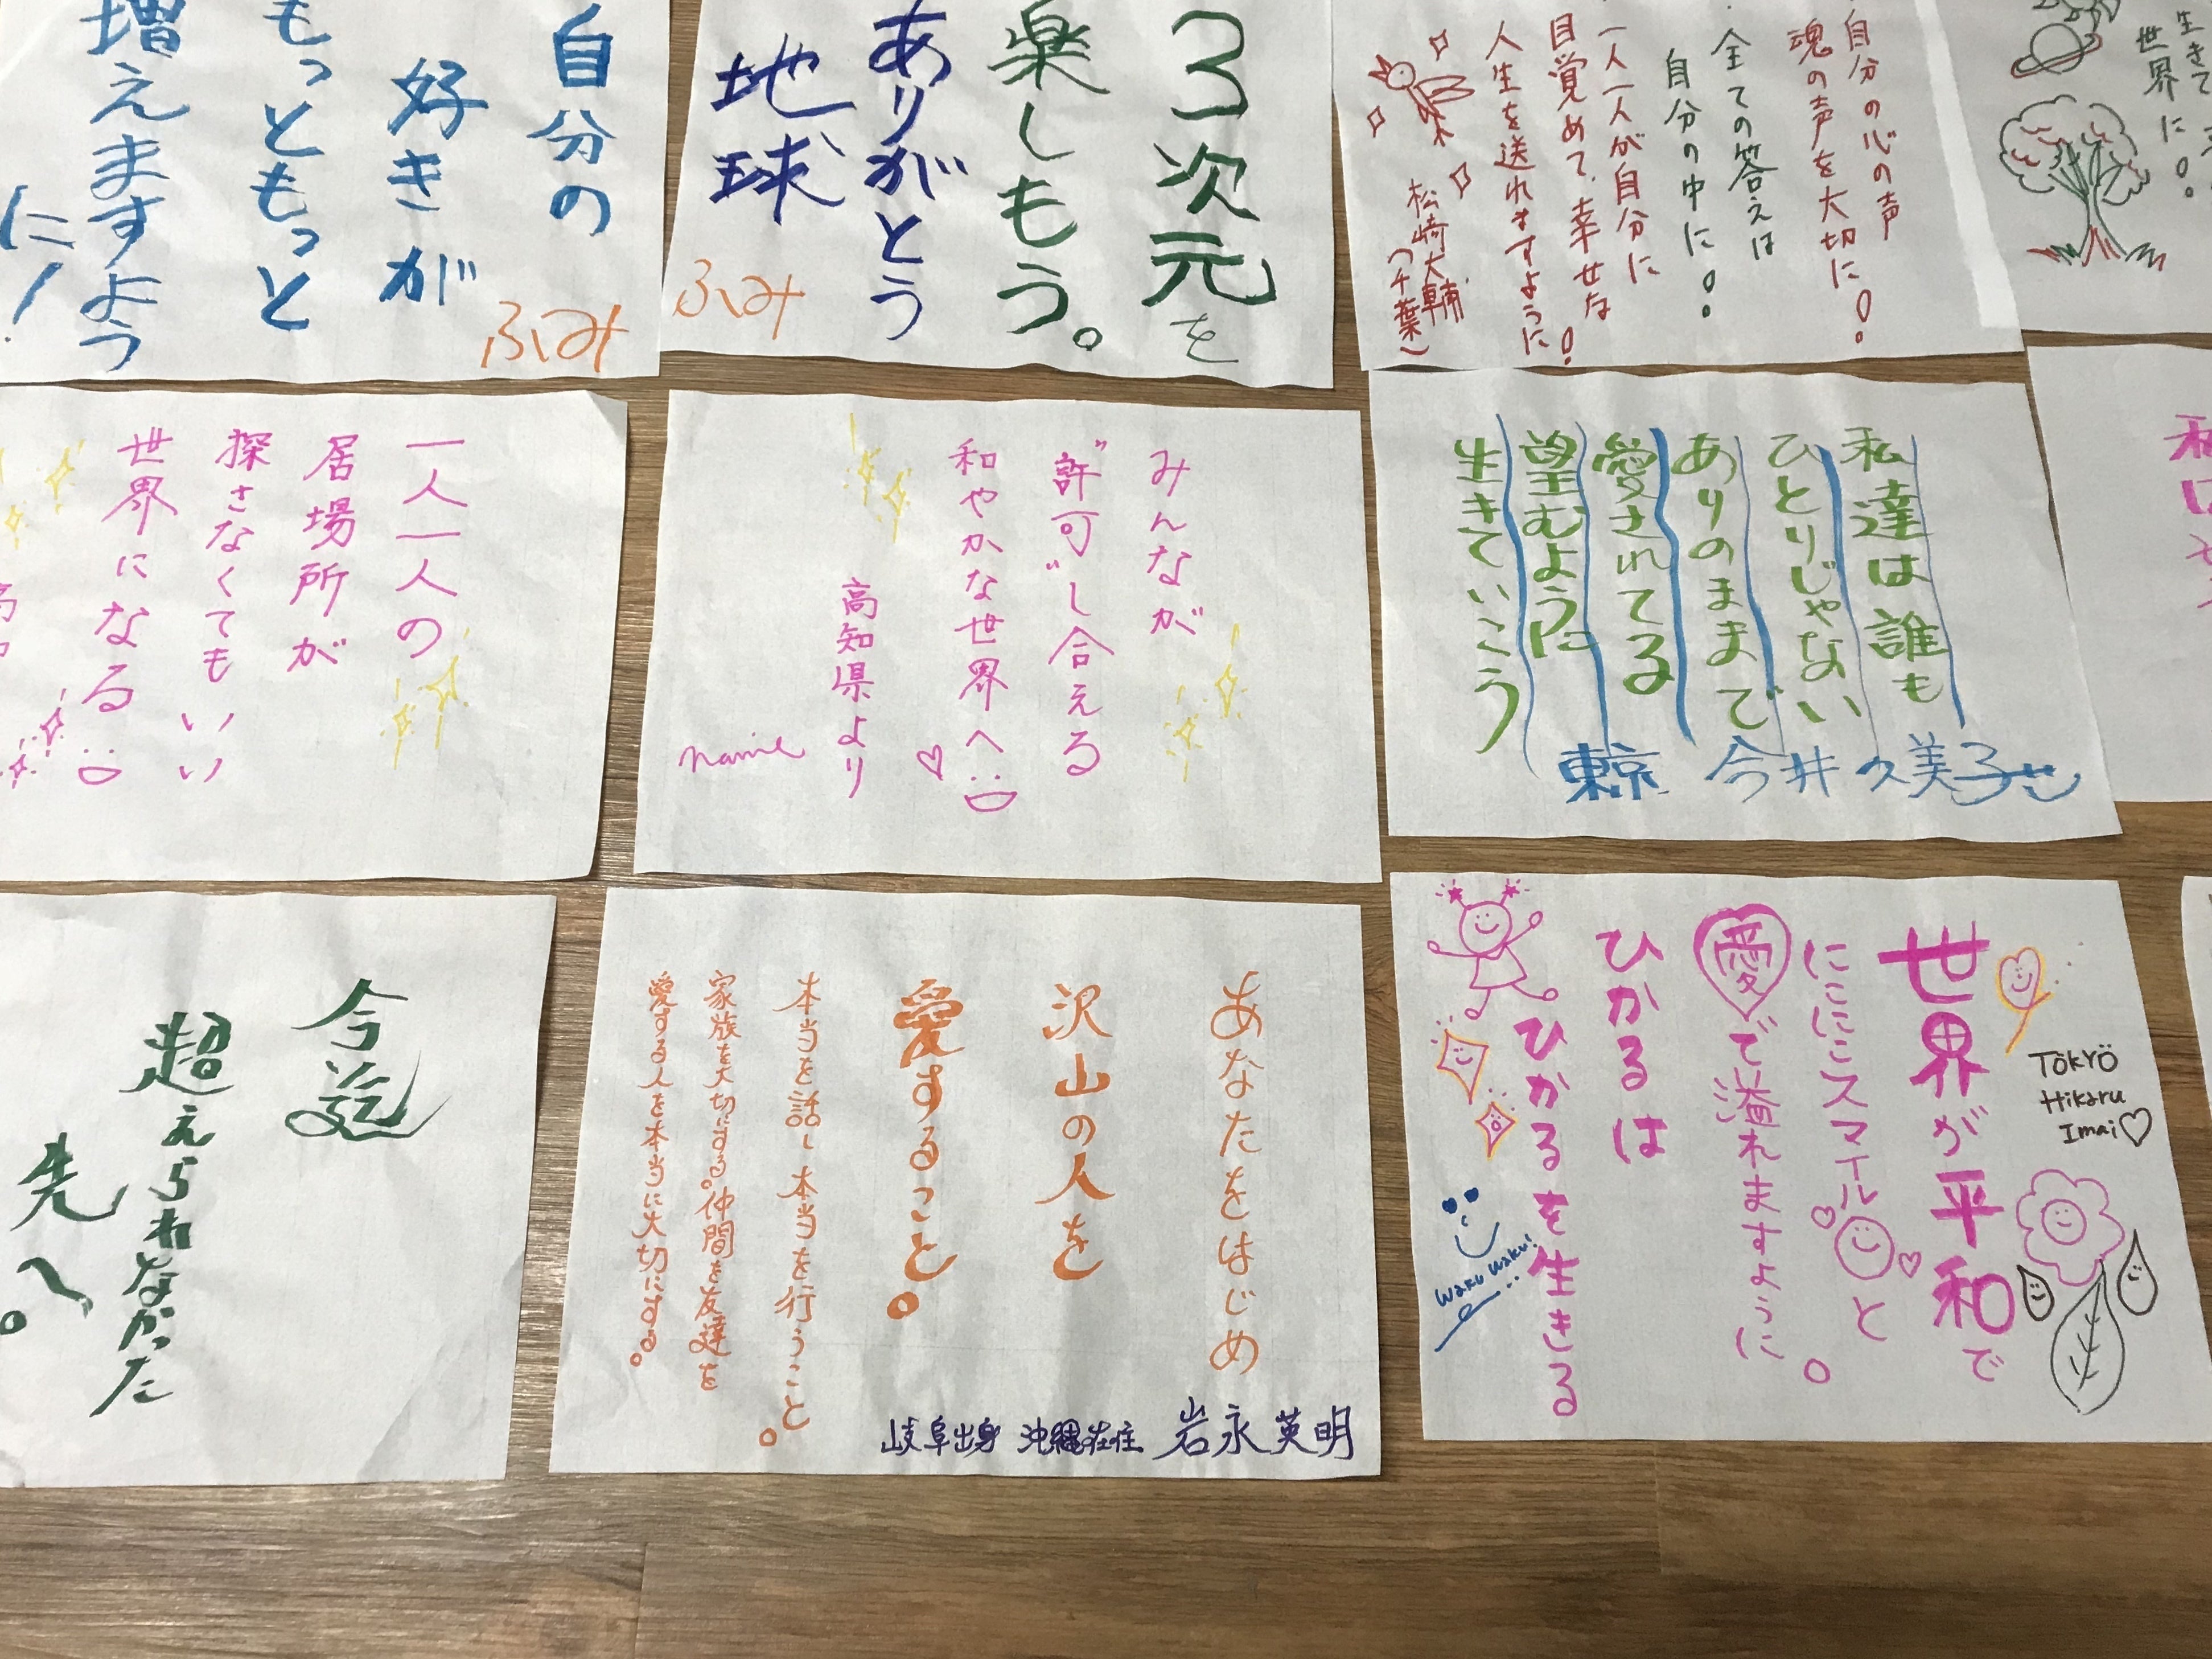 自分の
好きが
もっともっと
増えますよう
に!
ふみ
3次元を
楽しもう。
ありがとう
地球
ふみ
自分の心の声
魂の声を大切に!
全ての答えは
自分の中に!
一人一人が自分に
目覚めて、幸せな
人生を送れますように!
松崎大輔
(千葉)
生きて
世界に!
一人一人の
居場所が
探さなくてもいい
世界になる
みんなが
"許可"し合える
和やかな世界へ
高知県より
namie
私達は誰も
ひとりじゃない
ありのままで
愛されてる
望むように
生きていこう
東京 今井久美子
今迄
超えられなかった
先へ。
あなたをはじめ
沢山の人を
愛すること。
本当を話し本当を行うこと。
家族を大切にする。仲間を友達を
愛する人を本当に大切にする。
岐阜出身 沖縄在住 岩永英明
世界が平和で
にこにこスマイルと
愛で溢れますように。
ひかるは
ひかるを生きる
TOKYO
Hikaru
Imai
waku waku!